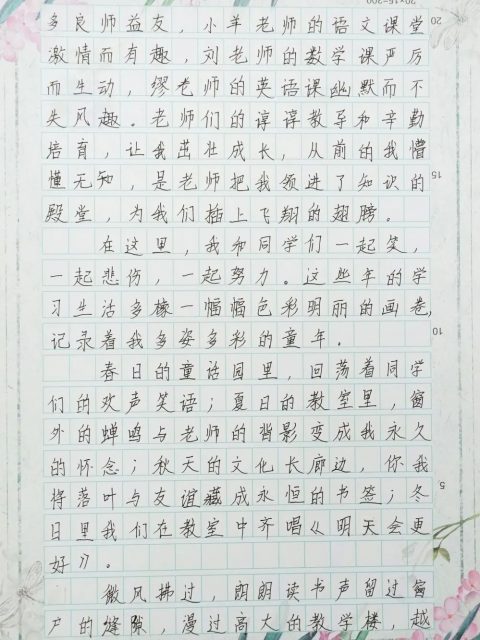 多良师益友，小羊老师的语文课堂
激情而有趣，刘老师的数学课严厉
而生动，缪老师的英语课幽默而不
失风趣。老师们的谆谆教导和辛勤
培育，让我茁壮成长，从前的我懵
懂无知，是老师把我领进了知识的
殿堂，为我们插上飞翔的翅膀。
在这里，我和同学们一起笑，
一起悲伤，一起努力。这些年的学
习生活多橡一幅幅色彩明丽的画卷，
记录着我多姿多彩的童年。
春日的童话园里，回荡着同学
们的欢声笑语；夏日的教室里，窗
外的蝉鸣与老师的背影变成我永久
的怀念；秋天的文化长廊边，你我
将落叶与友谊藏成永恒的书签；冬
日里我们在教室中齐唱《明天会更
好》。
微风拂过，朗朗读书声留过窗
户的缝隙，漫过高大的教学楼，越
20×15=200
20
15
10
5